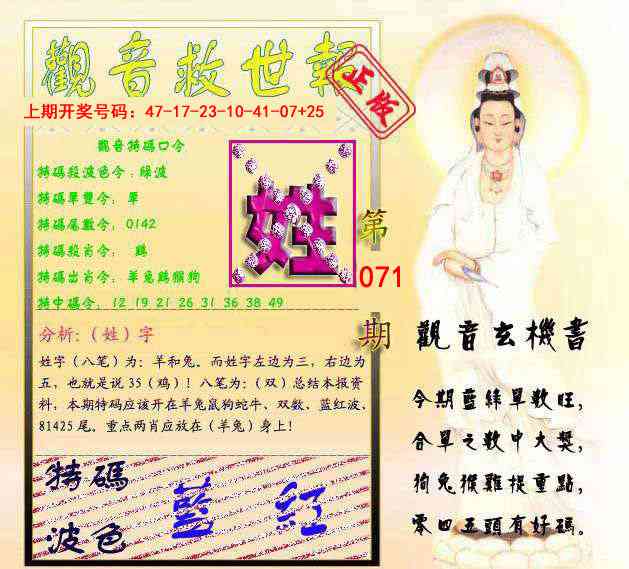 觀音救世報
正版
上期开奖号码：47-17-23-10-41-07+25
觀音特碼口令
特碼殺波色令：綠波
特碼單雙令：單
特碼尾數令：0142
特碼殺肖令：鷄
特碼出肖令：羊兔鷄猴狗
特中碼令：12 19 21 26 31 36 38 49
姓
第
071
期
分析：（姓）字
姓字（八笔）为：羊和兔。而姓字左边为三，右边为
五，也就是说 35（鸡）！八笔为：（双）总结本报资
料，本期特码应该开在羊兔鼠狗蛇牛、双数、蓝红波、
81425 尾。重点两肖应放在（羊兔）身上！
特碼
波色
藍 紅
觀音玄機書
今期藍綠單數旺，
合單之數中大獎，
狗兔猴雞提重點，
零四五頭有好碼。